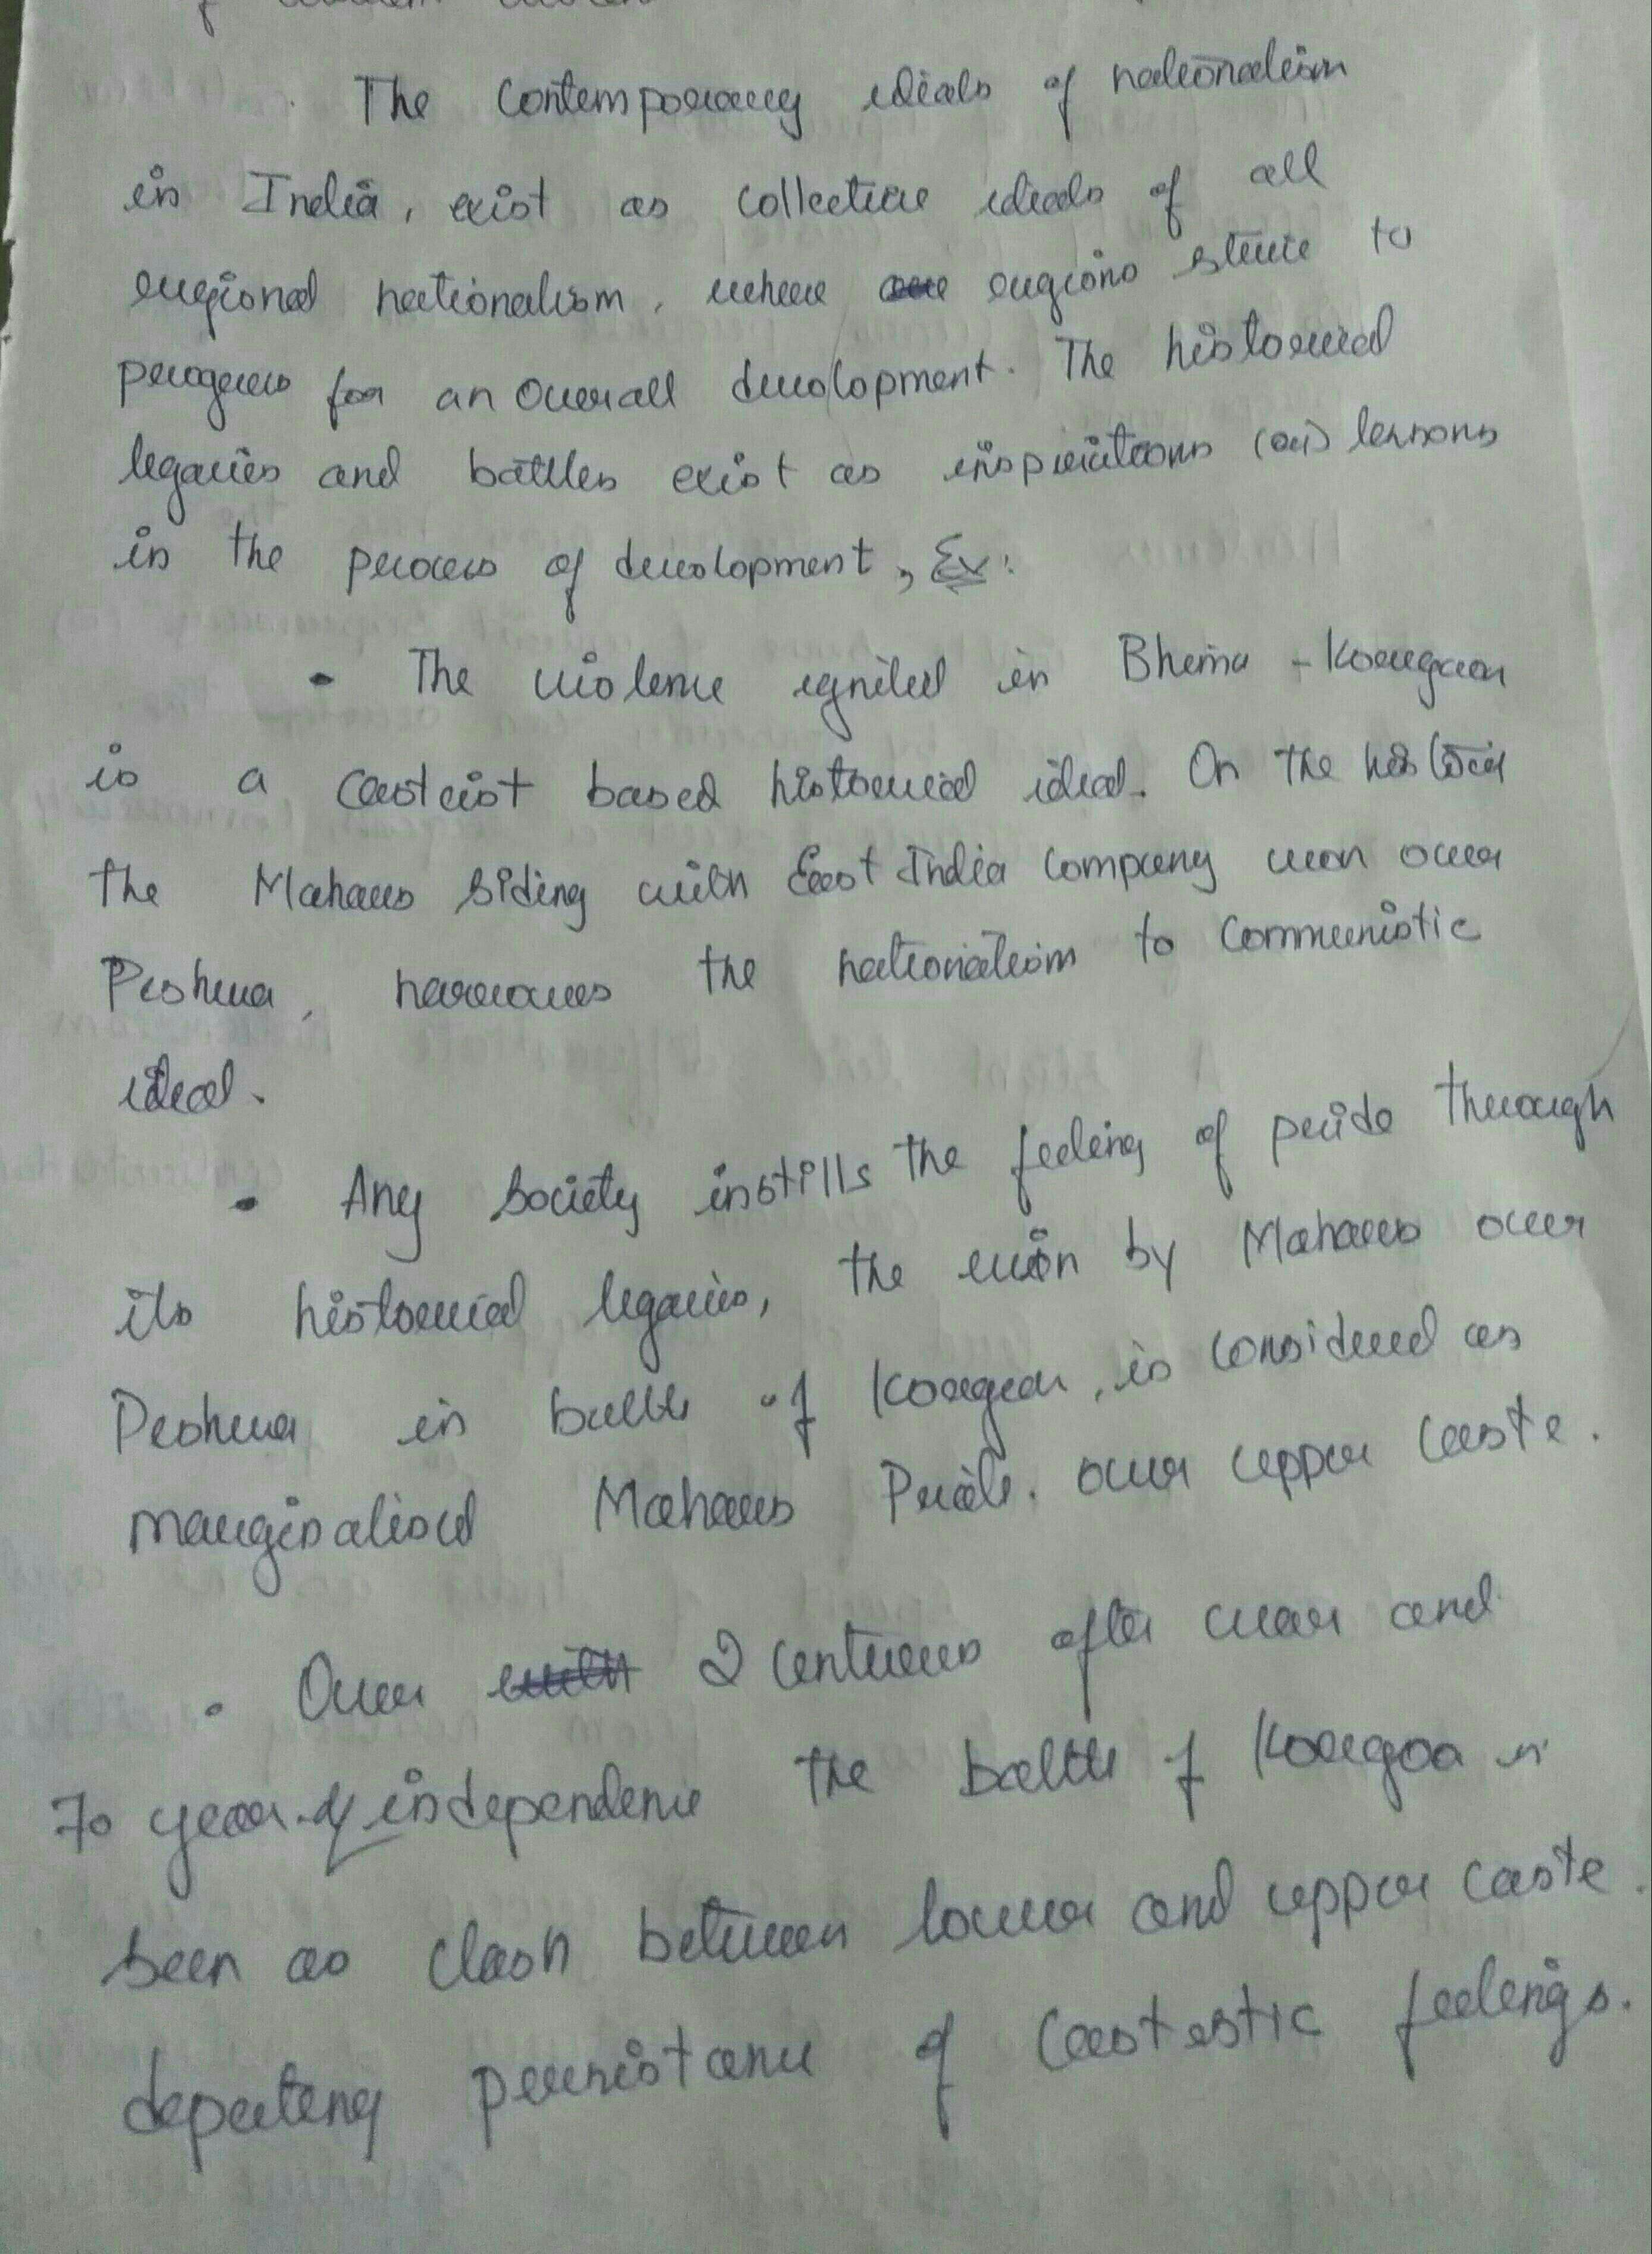 The contemporary ideals of nationalism
in India, exist as collective ideals of all
regional nationalism, where regions strive to
progress for an overall development. The historical
legacies and battles exist as inspirations (or) lessons
in the process of development, Ex:
• The violence ignited in Bhima - Koregaon
is a casteist based historical ideal. On the
the Mahars siding with East India Company won over
Peshwa, narrows the nationalism to communistic
ideal.
• Any society instills the feeling of pride through
its historical legacies, the win by Mahars over
Peshwa in battle of Koregaon, is considered as
marginalised Mahars Pride. over upper caste.
• Over 2 centuries after war and
70 year of independence the battle of
seen as clash between lower and upper caste.
depicting persistance of castestic feelings.